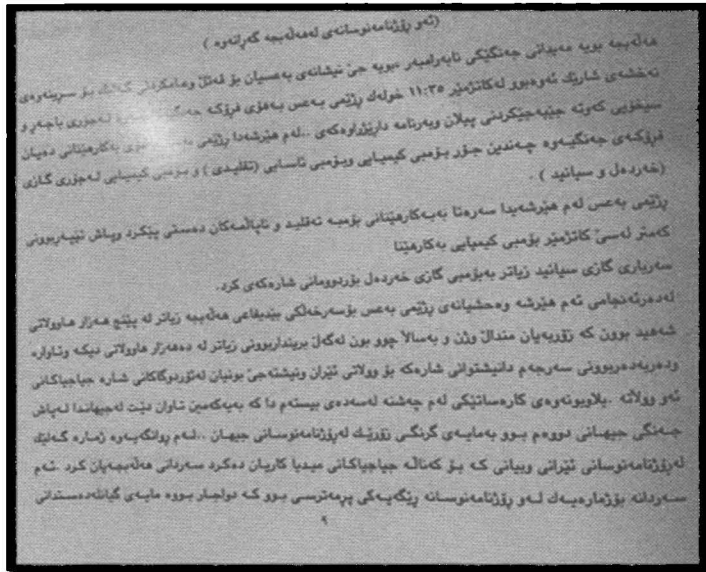 (ئەو رۆژنامەنوسانەی لەهەڵەبجە گەرانەوە )
هەڵەبجە بویە مەیدانی جەنگێکی نابەرامبەر بویە جێ نیشانەی بەعسیان بۆ قەتڵ وعامکردنی گەلێک بۆ سڕینەوەی
نەخشەی شارێک ئەوەبوو لەکاتژمێر ١١:٣٥ خولەک رژێمی بەعس بەهۆی فرۆکە لەجۆری باجەر و
سیخۆیی کەوتە جێبەجێکردنی پیلان وبەرنامە دارێژراوەکەی ..لەم هێرشەدا رژێمی بەکارهێنانی دەیان
فرۆکەی جەنگیەوە چەندین جۆر بۆمبی کیمیایی وبۆمبی ئاسایی (تقلیدی ) و بۆمبی کیمیایی لەجۆری گازی
(خەردەل و سیانید ) .
رژێمی بەعس لەم هێرشەیدا سەرەتا بەبەکارهێنانی بۆمبە تەقلید و ناپاڵمەکان دەستی پێکرد وپاش تێپەربوونی
کەمتر لەسێ کاتژمێر بۆمبی کیمیایی بەکارهێنا
سەرباری گازی سیانید زیاتر بەبۆمبی گازی خەردەل بۆردوومانی شارەکەی کرد.
لەدەرئەنجامی ئەم هێرشە وەحشیانەی رژێمی بەعس بۆسەرخەڵکی بێدیفاعی هەڵەبجە زیاتر لە پێنج هەزار هاوولاتی
شەهید بوون کە زۆربەیان منداڵ وژن و بەساڵا چوو بون لەگەڵ برینداربوونی زیاتر لە دەهەزار هاوولاتی دیکە وئاوارە
ودەربەدەربوونی سەرجەم دانیشتوانی شارەکە بۆ وولاتی ئێران ونیشتەجێ بونیان لەئۆردوگاکانی شارە جیاجیاکانی
ئەو وولاتە .بلاوبونەوەی کارەساتێکی لەم چەشنە لەسەدەی بیستەم دا کە بەیەکەمین تاوان دێت لەجیهاندا لەپاش
جەنگی جیهانی دووەم بوو بەمایەی گرنگی زۆرێک لەرۆژنامەنوسانی جیهان ..لەم روانگەیەوە ژمارە گەلێک
لەرۆژنامەنوسانی ئێرانی وبیانی کە بۆ کەناڵە جیاجیاکانی میدیا کاریان دەکرد سەردانی هەڵەبجەیان کرد .ئەم
سەردانە بۆژمارەیەک لەو رۆژنامەنوسانە رێگەیەکی پرمەترسی بوو کە دواجار بووە مایەی گیانلەدەستدانی